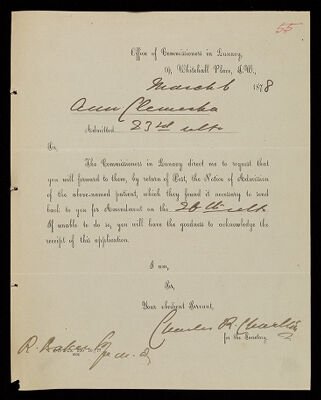 55
Office of Commissioners in Lunacy,
19, Whitehall Place, S.W.,
March 6 1878
Ann
Admitted 23rd ulto
Sir,
The Commissioners in Lunacy direct me to request that
you will forward to them, by return of Post, the Notice of Admission
of the above-named patient, which they found it necessary to send
back to you for Amendment on the 26th ulto
If unable to do so, you will have the goodness to acknowledge the
receipt of this application.
I am,
Sir,
Your obedient Servant,
Charles R.
for the Secretary.
R. Baker Esq M.D.